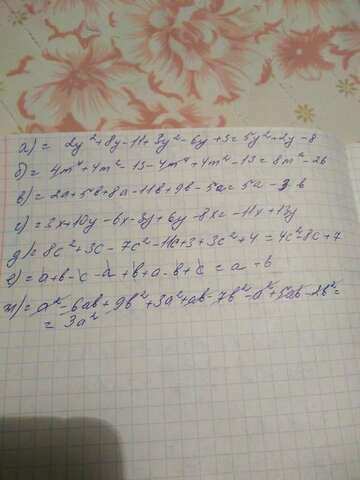 а) = 2y²+8y-11+3y²-6y+3=5y²+2y-8
б) = 4m⁴+4m²-13-4m⁴+4m²-13=8m²-26
в) = 2a+5b+8a-11b+9b-5a=5a-3b
г) = 3x+10y-6x-3y+6y-8x=-11x+13y
д) = 8c²+3c-7c²-11c+3+3c²+4=4c²-8c+7
е) = a+b-c-a+b+a-b+c=a+b
ж) = a²-6ab+9b²+3a²+ab-7b²-a²+5ab-2b²=
= 3a²